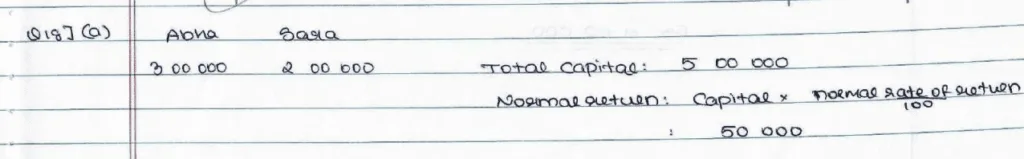 Q18] (a) Abha Sara
3 00 000 2 00 000 Total Capital: 5 00 000
Normal return: Capital × normal rate of return
100
: 50 000